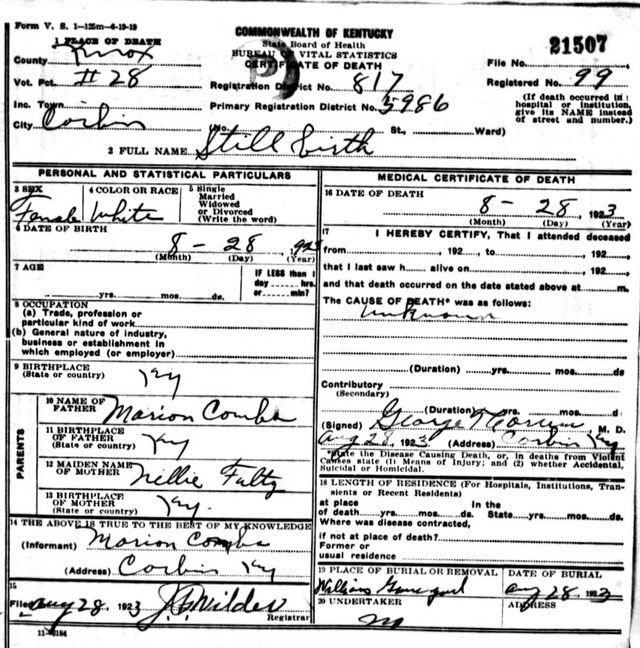 Form V. S. 1—125m—6-19-19
COMMONWEALTH OF KENTUCKY
State Board of Health
BUREAU OF VITAL STATISTICS
CERTIFICATE OF DEATH
21507
1 PLACE OF DEATH
County Knox
File No.
Vot. Pct. #28
Registration District No. 817
Registered No. 99
Inc. Town
Primary Registration District No. 5986
(If death occurred in a hospital or institution, give its NAME instead of street and number.)
City Corbin (No. St., Ward)
2 FULL NAME Still Birth
PERSONAL AND STATISTICAL PARTICULARS
3 SEX Female
4 COLOR OR RACE White
5 Single
Married
Widowed
or Divorced
(Write the word)
6 DATE OF BIRTH
8 - 28, 1923
(Month) (Day) (Year)
7 AGE
yrs. mos. ds.
IF LESS than 1
day hrs.
or min.?
8 OCCUPATION
(a) Trade, profession or
particular kind of work
(b) General nature of industry,
business or establishment in
which employed (or employer)
9 BIRTHPLACE
(State or country) Ky
PARENTS
10 NAME OF
FATHER Marion Combs
11 BIRTHPLACE
OF FATHER
(State or country) Ky
12 MAIDEN NAME
OF MOTHER Nellie Fultz
13 BIRTHPLACE
OF MOTHER
(State or country) Ky.
14 THE ABOVE IS TRUE TO THE BEST OF MY KNOWLEDGE
(Informant) Marion Combs
(Address) Corbin Ky
15
Filed Aug 28, 1923 Wilder
Registrar
MEDICAL CERTIFICATE OF DEATH
16 DATE OF DEATH
8 - 28, 1923
(Month) (Day) (Year)
17 I HEREBY CERTIFY, That I attended deceased
from , 192 , to , 192 ,
that I last saw h alive on , 192 ,
and that death occurred on the date stated above at m.
The CAUSE OF DEATH* was as follows:
Unknown
(Duration) yrs. mos. ds.
Contributory
(Secondary)
(Duration) yrs. mos. d
(Signed) George M. D.
Aug 28, 1923 (Address) Corbin Ky
*State the Disease Causing Death, or, in deaths from Violent
Causes state (1) Means of Injury; and (2) whether Accidental,
Suicidal or Homicidal.
18 LENGTH OF RESIDENCE (For Hospitals, Institutions, Transients or Recent Residents)
at place In the
of death yrs. mos. ds. State yrs. mos. ds.
Where was disease contracted,
if not at place of death?
Former or
usual residence
19 PLACE OF BURIAL OR REMOVAL
Williams
DATE OF BURIAL
Aug 28, 1923
20 UNDERTAKER
ADDRESS